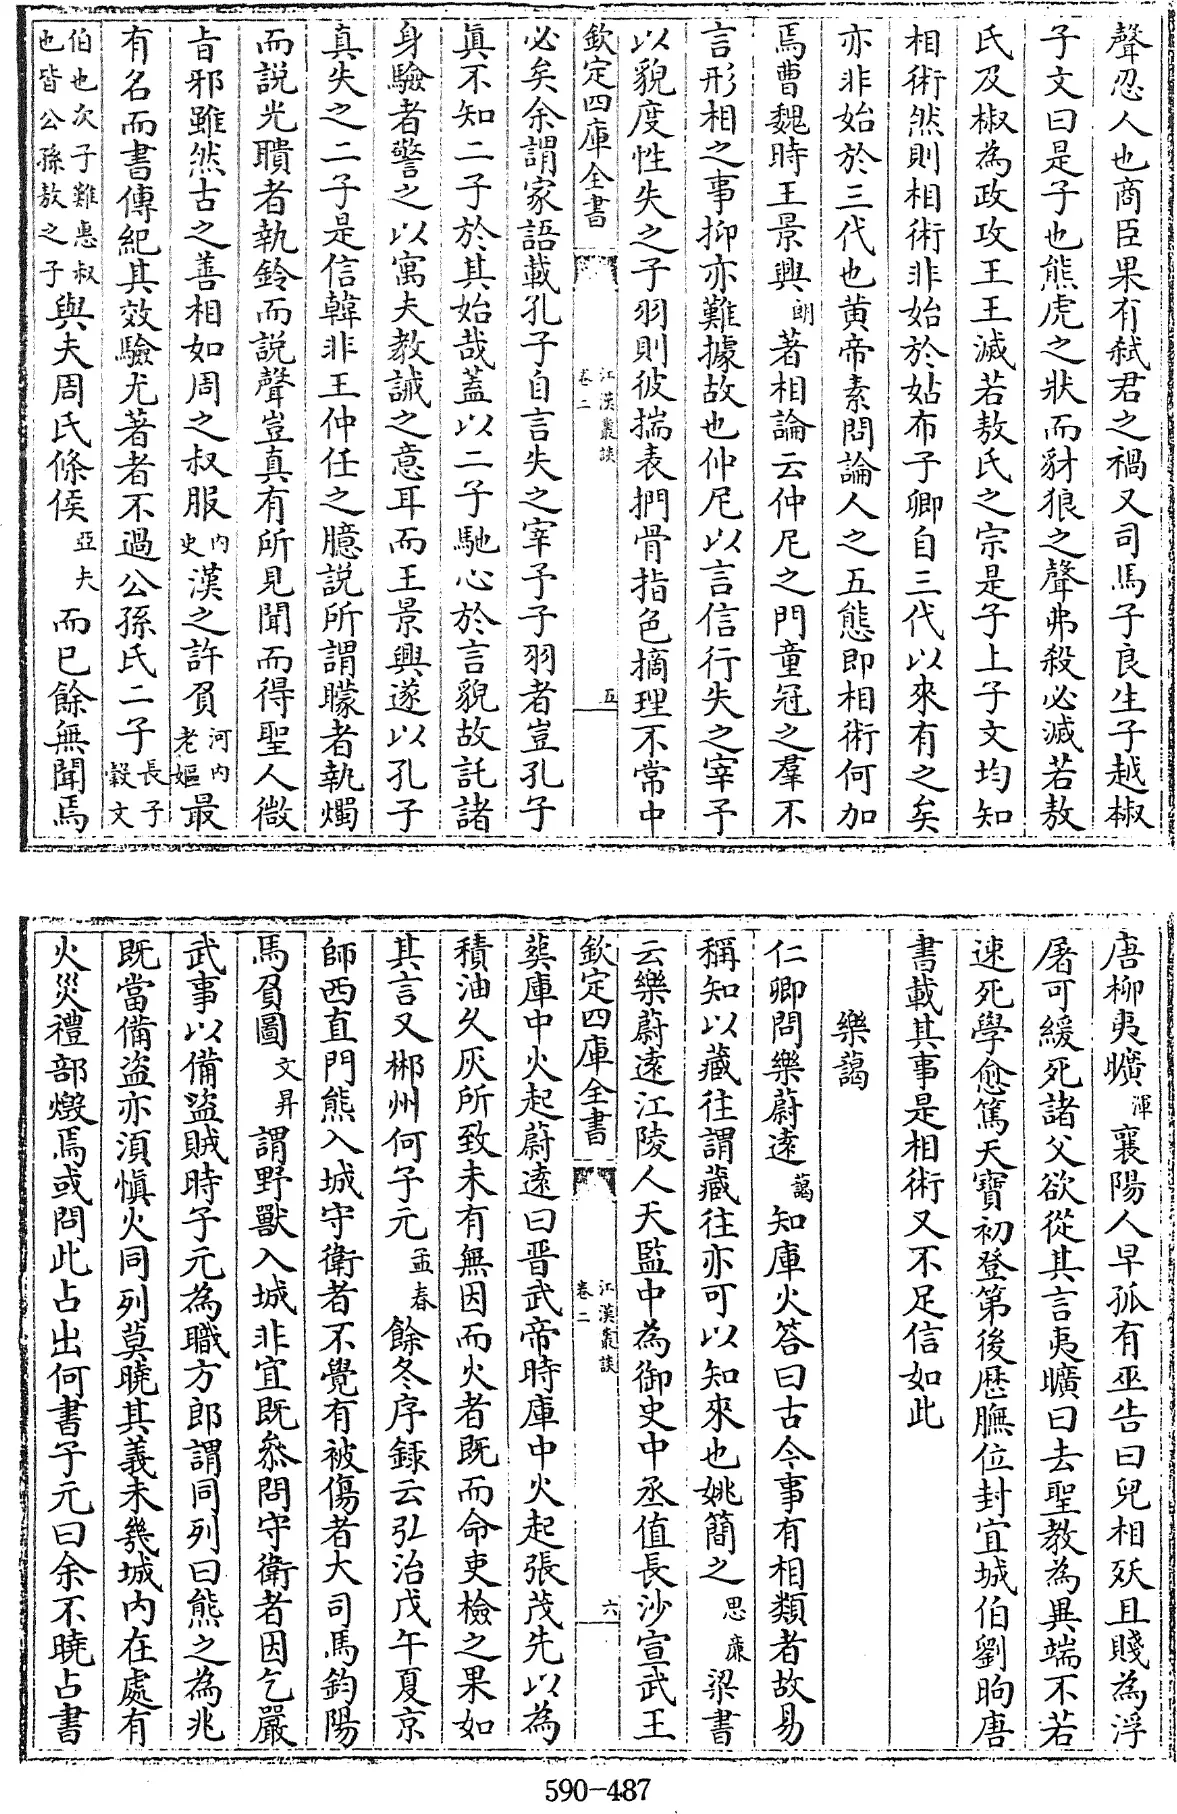 聲忍人也商臣果有弑君之禍又司馬子良生子越椒
子文曰是子也熊虎之狀而豺狼之聲弗殺必滅若敖
氏及椒為政攻王王滅若敖氏之宗是子上子文均知
相術然則相術非始於姑布子卿自三代以來有之矣
亦非始於三代也黄帝素問論人之五態即相術何加
焉曹魏時王景興朗著相論云仲尼之門童冠之羣不
言形相之事抑亦難據故也仲尼以言信行失之宰予
以貌度性失之子羽則彼揣表捫骨指色摘理不常中
欽定四庫全書
江漢叢談
卷二
五
必矣余謂家語載孔子自言失之宰予子羽者豈孔子
眞不知二子於其始哉蓋以二子馳心於言貌故託諸
身驗者警之以寓夫教誡之意耳而王景興遂以孔子
真失之二子是信韓非王仲任之臆説所謂矇者執燭
而説光聵者執鈴而説聲豈真有所見聞而得聖人微
旨邪雖然古之善相如周之叔服内史漢之許負河内老嫗最
有名而書傳紀其效驗尤著者不過公孫氏二子長子穀文
伯也次子難惠叔也皆公孫敖之子與夫周氏條侯亞夫而已餘無聞焉
唐柳夷曠渾襄陽人早孤有巫告曰兒相殀且賤為浮
屠可緩死諸父欲從其言夷曠曰去聖教為異端不若
速死學愈篤天寳初登第後歴膴位封宜城伯劉昫唐
書載其事是相術又不足信如此
樂藹
仁卿問樂蔚遠藹知庫火答曰古今事有相類者故易
稱知以藏往謂藏往亦可以知來也姚簡之思亷梁書
云樂蔚遠江陵人天監中為御史中丞值長沙宣武王
欽定四庫全書
江漢叢談
卷二
六
葬庫中火起蔚遠曰晋武帝時庫中火起張茂先以為
積油久灰所致未有無因而火者既而命吏檢之果如
其言又郴州何子元孟春餘冬序録云弘治戊午夏京
師西直門熊入城守衛者不覺有被傷者大司馬鈞陽
馬負圖文昇謂野獸入城非宜既叅問守衛者因乞嚴
武事以備盜賊時子元為職方郎謂同列曰熊之為兆
既當備盜亦湏愼火同列莫曉其義未幾城内在處有
火災禮部燬焉或問此占出何書子元曰余不曉占書
590-487